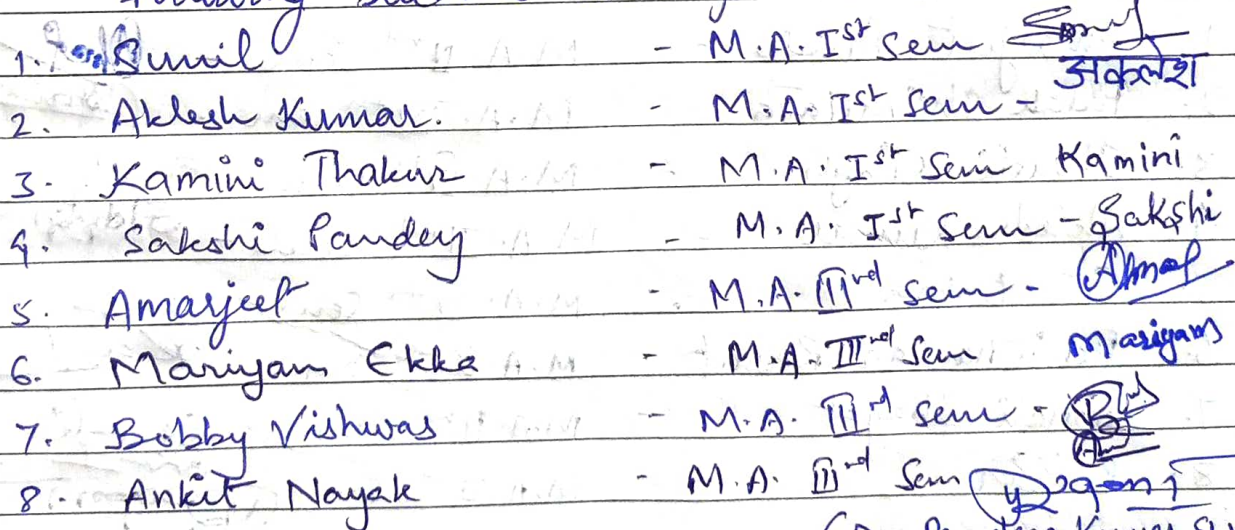 1. Sunil - M.A. Ist Sem
अकलेश
2. Aklesh Kumar. - M.A. Ist Sem -
3. Kamini Thakur - M.A. Ist Sem Kamini
4. Sakshi Pandey - M.A. Ist Sem - Sakshi
5. Amarjeet - M.A. IIIrd Sem -
6. Mariyam Ekka - M.A. IIIrd Sem Mariyam
7. Bobby Vishwas - M.A. IIIrd Sem -
8. Ankit Nayak - M.A. IIIrd Sem